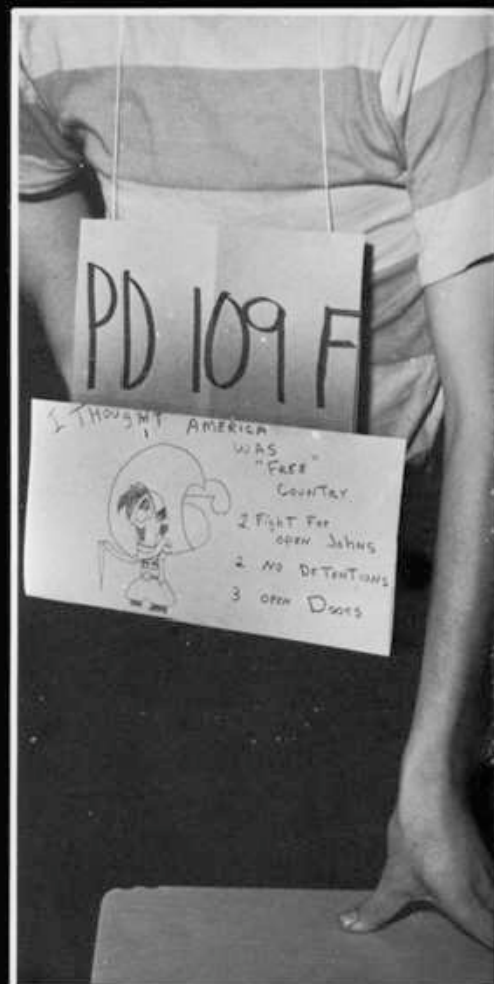 PD 109 F
I THOUGHT AMERICA
WAS
"FREE"
COUNTRY
1 Fight For
open Johns
2 NO DETENTIONS
3 open Doors